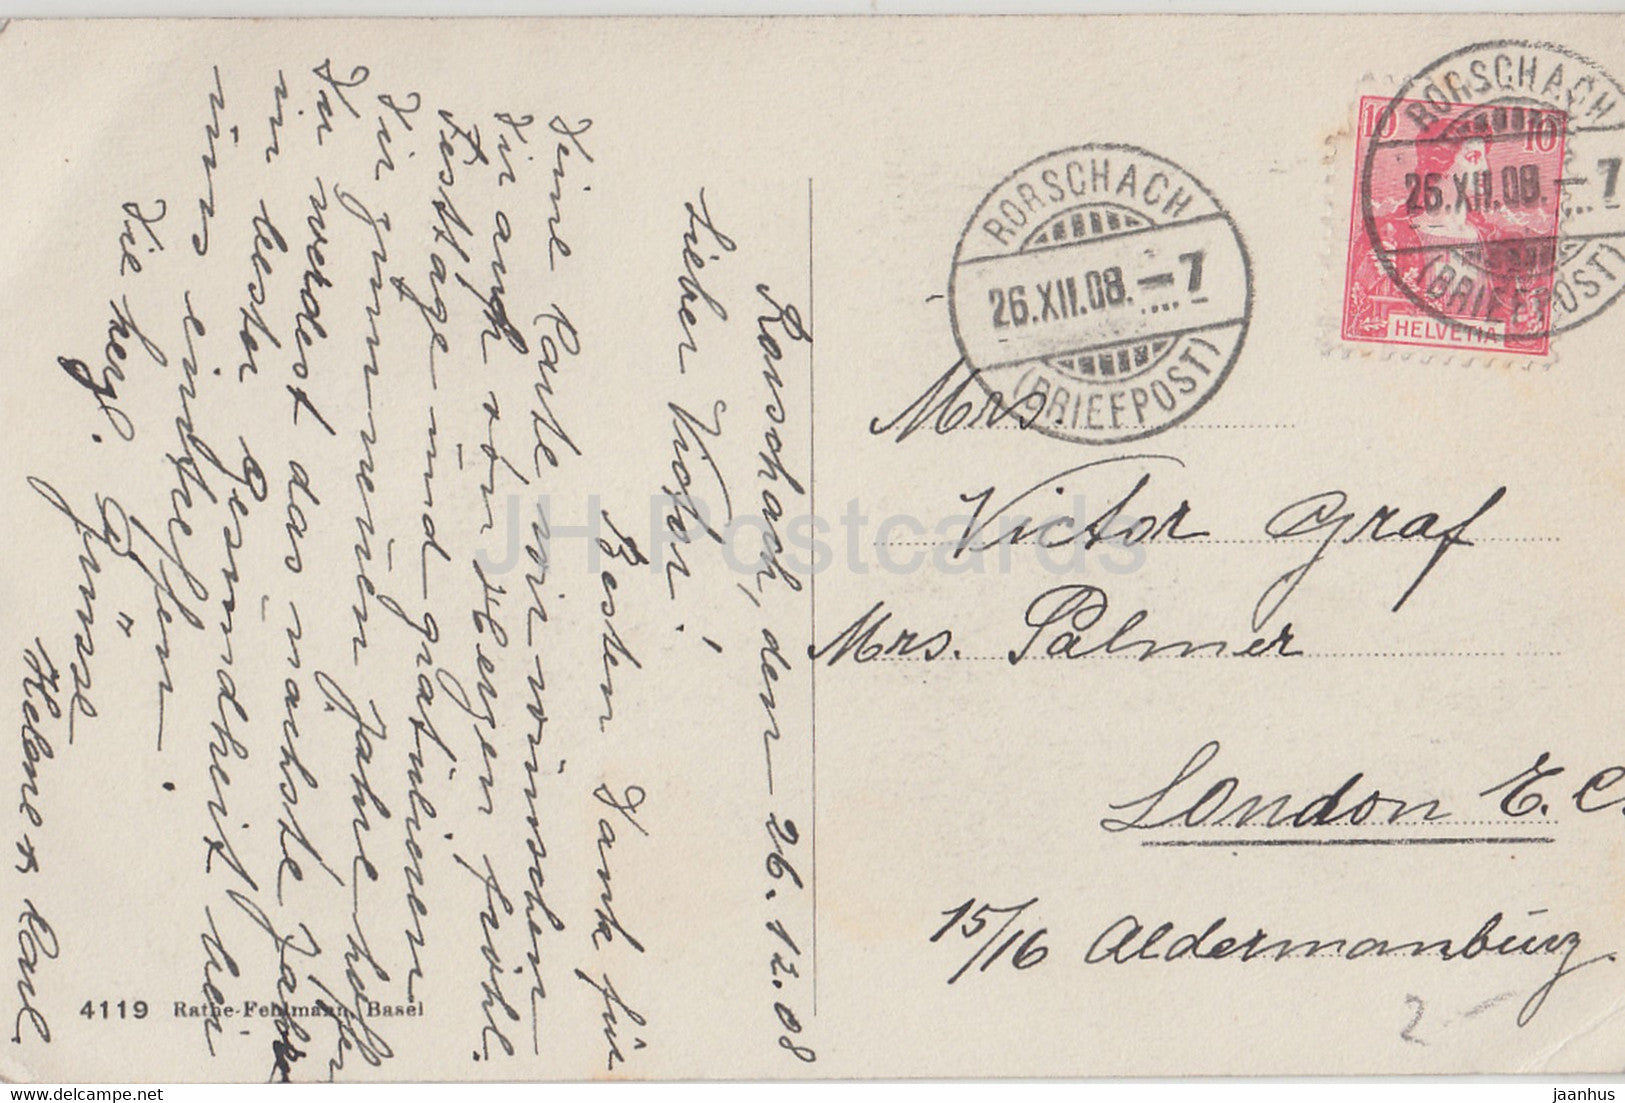 Rorschach, den 26.12.08
Lieber Victor!
Besten Dank für
Deine Karte, wir wünschen
Dir auch von Herzen fröhl.
Festtage und gratulieren
Dir zum neuen Jahre, hoff
Du werdest das nächste Jahr
in bester Gesundheit bei
uns eintreffen.
Die herzl. Grüsse
Helene & Karl
4119 Rathe-Fehlmann, Basel
RORSCHACH
26.XII.08.–7
(BRIEFPOST)
RORSCHACH
26.XII.08.–7
(BRIEFPOST)
10 10
HELVETIA
Mrs.
Victor Graf
Mrs. Palmer
London E.C.
15/16 Aldermanbury.
2.-
JH Postcards
jaanhus